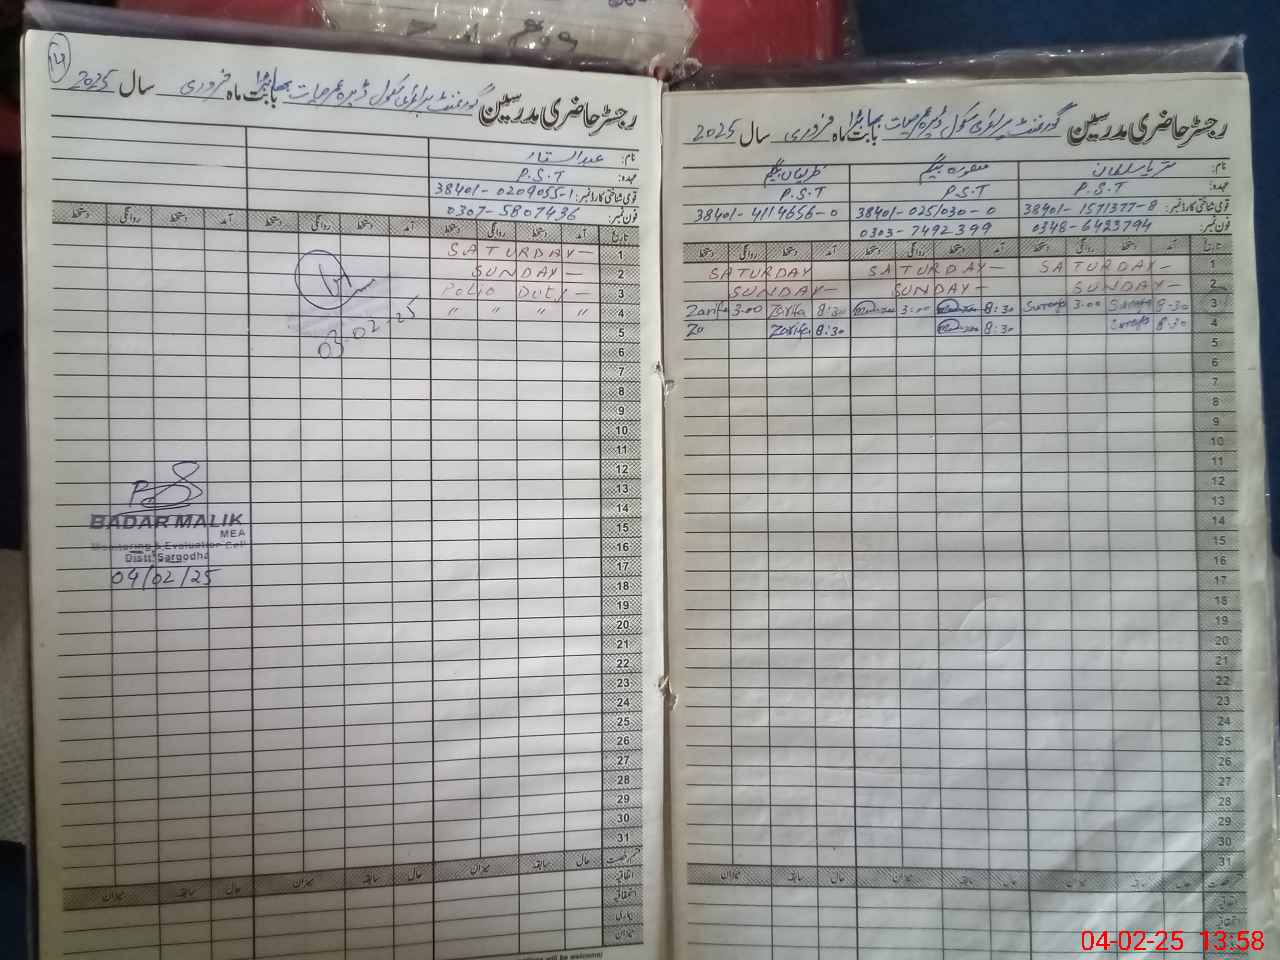 رجسٹر حاضری مدرسین گورنمنٹ پرائمری سکول ڈیرہ بابت ماہ فروری سال 2025
نام: ثریا سلطان
عہدہ: P.S.T
قومی شناختی کارڈ نمبر: 38401-1571377-8
فون نمبر: 0348-6423794
بیگم
P.S.T
38401-0251030-0
0303-7492399
بیگم
P.S.T
38401-4114656-0
تاریخ آمد دستخط روانگی دستخط آمد دستخط روانگی دستخط آمد دستخط روانگی دستخط
1 SATURDAY- SATURDAY- SATURDAY
2 SUNDAY- SUNDAY- SUNDAY-
3 8:30 3:00 8:30 3:00 8:30 Zarifa 3:00 Zarifa
4 8:30 8:30 8:30 Zarifa Za
5
6
7
8
9
10
11
12
13
14
15
16
17
18
19
20
21
22
23
24
25
26
27
28
29
30
31
حال سابقہ میزان حال سابقہ میزان حال سابقہ میزان
اتفاقیہ
04-02-25 13:58
14
رجسٹر حاضری مدرسین گورنمنٹ پرائمری سکول ڈیرہ بابت ماہ فروری سال 2025
نام: عبدالستار
عہدہ: P.S.T
قومی شناختی کارڈ نمبر: 38401-0209055-1
فون نمبر: 0307-5807436
تاریخ آمد دستخط روانگی دستخط آمد دستخط روانگی دستخط آمد دستخط روانگی دستخط
1 SATURDAY-
2 SUNDAY-
3 Polio Duty-
4 〃 〃 〃 〃
5
6
7
8
9
10
11
12
13
14
15
16
17
18
19
20
21
22
23
24
25
26
27
28
29
30
31
03-02-25
BADAR MALIK
MEA
Monitoring & Evaluation Cell
Distt. Sargodha
04/02/25
حال سابقہ میزان حال سابقہ میزان حال سابقہ میزان
اتفاقیہ
استحقاقیہ
بیماری
میزان